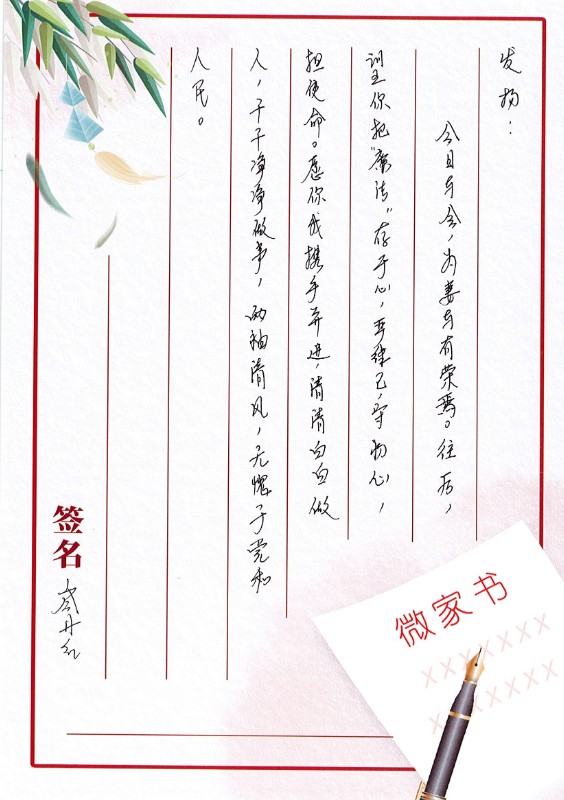 发扬：
今日与会，为妻与有荣焉。往后，
训主你把“廉法”存于心，严律己，守初心，
担使命。愿你我携手并进，清清白白做
人，干干净净做事，两袖清风，无愧于党和
人民。
签名
岑丹红
微家书
XXXXXXX
XXXXXXX